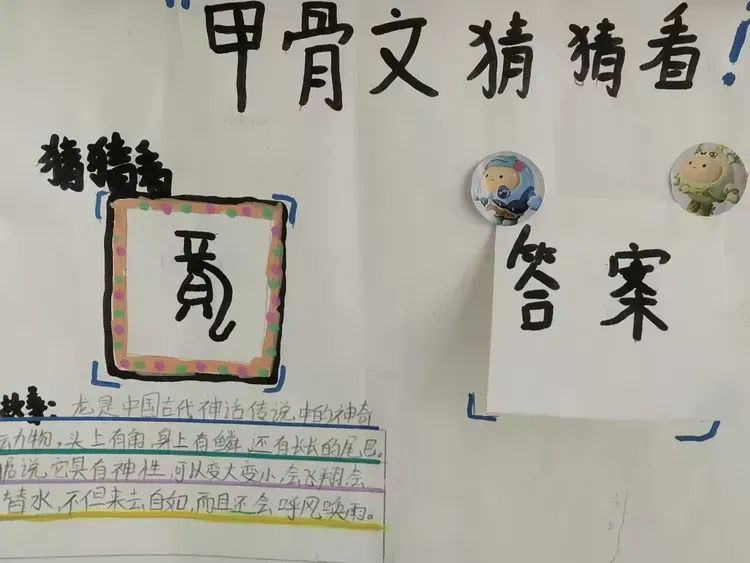 "甲骨文猜猜看!
猜猜看
答案
故事:龙是中国古代神话传说中的神奇
动物,头上有角,身上有鳞,还有长长的尾巴。
据说它具有神性,可以变大变小,会飞翔,会
替水,不但来去自如,而且还会呼风唤雨。